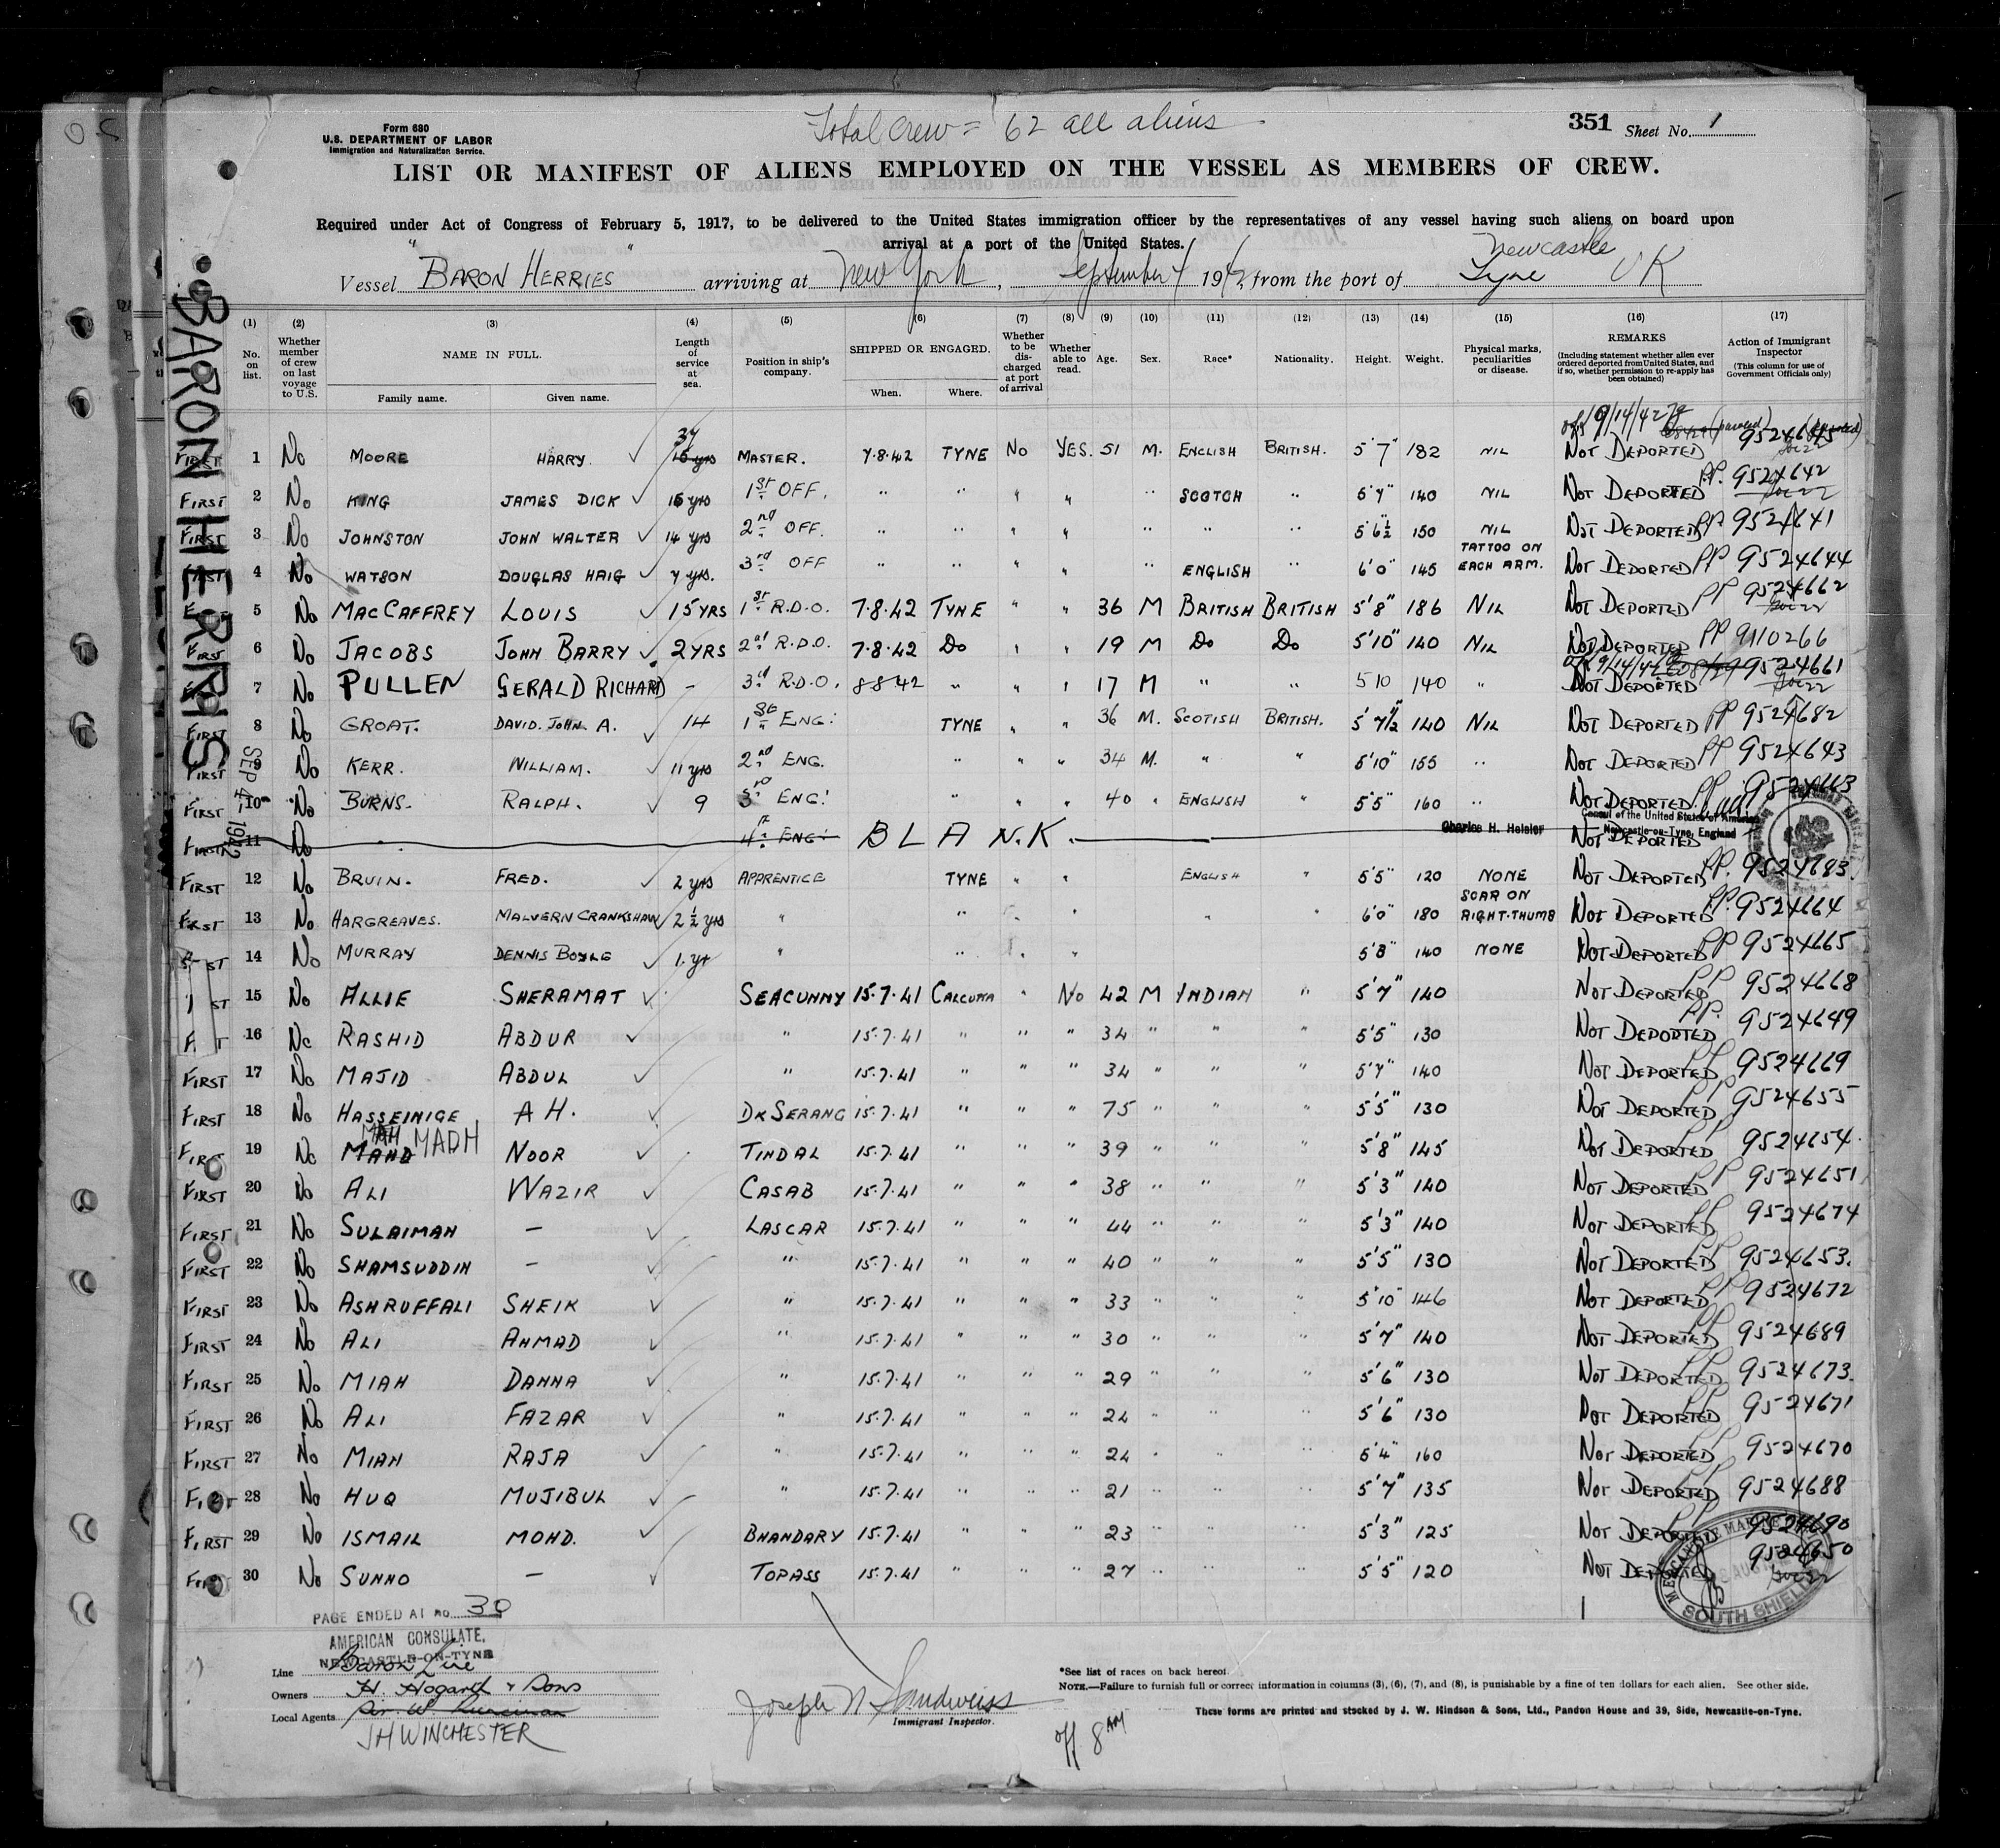 Total crew = 62 all aliens
Form 680
U.S. DEPARTMENT OF LABOR
Immigration and Naturalization Service.
351 Sheet No. 1
LIST OR MANIFEST OF ALIENS EMPLOYED ON THE VESSEL AS MEMBERS OF CREW.
Required under Act of Congress of February 5, 1917, to be delivered to the United States immigration officer by the representatives of any vessel having such aliens on board upon
arrival at a port of the United States.
Newcastle
Vessel "BARON HERRIES" arriving at New York, September 4 1942, from the port of Tyne UK
BARON HERRIES
SEP 4 - 1942
(1) (2) (3) (4) (5) (6) (7) (8) (9) (10) (11) (12) (13) (14) (15) (16) (17)
No. on list.
Whether member of crew on last voyage to U.S.
NAME IN FULL.
Family name. Given name.
Length of service at sea.
Position in ship's company.
SHIPPED OR ENGAGED.
When. Where.
Whether to be discharged at port of arrival
Whether able to read.
Age. Sex. Race* Nationality. Height. Weight.
Physical marks, peculiarities or disease.
REMARKS
(Including statement whether alien ever ordered deported from United States, and if so, whether permission to re-apply has been obtained)
Action of Immigrant Inspector
(This column for use of Government Officials only)
FIRST 1 No MOORE HARRY. MASTER. 7.8.42 TYNE No YES. 51 M. ENGLISH BRITISH. 5'7" 182 NIL NOT DEPORTED
FIRST 2 No KING JAMES DICK 15 yrs 1st OFF. " " " " " SCOTCH " 5'7" 140 NIL NOT DEPORTED PP. 9524642
FIRST 3 No JOHNSTON JOHN WALTER 14 yrs 2nd OFF. " " " " " " " 5'6½ 150 NIL NOT DEPORTED PP 9524641
4 No WATSON DOUGLAS HAIG 7 yrs. 3rd OFF " " " " " ENGLISH " 6'0" 145 TATTOO ON EACH ARM. NOT DEPORTED PP 9524644
5 No MACCAFFREY LOUIS 15 YRS 1st R.D.O. 7.8.42 TYNE " " 36 M BRITISH BRITISH 5'8" 186 NIL NOT DEPORTED PP 9524662
FIRST 6 No JACOBS JOHN BARRY 2 YRS 2nd R.D.O. 7.8.42 Do " " 19 M Do Do 5'10" 140 NIL NOT DEPORTED PP 9110266
7 No PULLEN GERALD RICHARD - 3rd R.D.O. 8 8 42 " " " 17 M " " 5 10 140 " NOT DEPORTED 9524661
FIRST 8 No GROAT. DAVID. JOHN. A. 14 1st ENG: TYNE " " 36 M. SCOTISH BRITISH. 5'7½" 140 NIL NOT DEPORTED PP 9524682
FIRST 9 No KERR. WILLIAM. 11 yrs 2nd ENG. " " " 34 M. " " 5'10" 155 " NOT DEPORTED PP 9524643
FIRST 10 No BURNS. RALPH. 9 3rd ENG: " " " 40 " ENGLISH " 5'5" 160 " NOT DEPORTED. 9524663
FIRST 11 No 4th ENG: BLANK. NOT DEPORTED
Charles H. Heisler
Consul of the United States of America
Newcastle-on-Tyne, England
FIRST 12 No BRUIN. FRED. 2 yrs APPRENTICE TYNE " " ENGLISH " 5'5" 120 NONE NOT DEPORTED PP. 9524683.
FIRST 13 No HARGREAVES. MALVERN CRANKSHAW 2½ yrs " " " " " " 6'0" 180 SCAR ON RIGHT-THUMB NOT DEPORTED PP. 9524664
14 No MURRAY DENNIS BOYLE 1. yr " " " " 5'8" 140 NONE NOT DEPORTED PP 9524665
15 No ALLIE SHERAMAT SEACUNNY 15.7.41 CALCUTTA " No 42 M INDIAN " 5'7" 140 NOT DEPORTED PP 9524668
16 No RASHID ABDUR " 15.7.41 " " " 34 " " " 5'5" 130 NOT DEPORTED PP. 9524649
FIRST 17 No MAJID ABDUL " 15.7.41 " " " 34 " " " 5'7" 140 NOT DEPORTED PP 9524669
FIRST 18 No HASSEINIGE A H. DK SERANG 15.7.41 " " " 75 " " " 5'5" 130 NOT DEPORTED PP 9524655
FIRST 19 No MAH MADH NOOR TINDAL 15.7.41 " " " 39 " " " 5'8" 145 NOT DEPORTED PP 9524654
FIRST 20 No ALI WAZIR CASAB 15.7.41 " " " 38 " " " 5'3" 140 NOT DEPORTED PP 9524651
FIRST 21 No SULAIMAN - LASCAR 15.7.41 " " " 44 " " " 5'3" 140 NOT DEPORTED PP 9524674
FIRST 22 No SHAMSUDDIN - " 15.7.41 " " " 40 " " " 5'5" 130 NOT DEPORTED PP 9524653.
FIRST 23 No ASHRUFFALI SHEIK " 15.7.41 " " " 33 " " " 5'10" 146 NOT DEPORTED PP 9524672
FIRST 24 No ALI AHMAD " 15.7.41 " " " 30 " " " 5'7" 140 NOT DEPORTED PP 9524689
FIRST 25 No MIAH DANNA " 15.7.41 " " " 29 " " " 5'6" 130 NOT DEPORTED PP 9524673.
FIRST 26 No ALI FAZAR " 15.7.41 " " " 24 " " " 5'6" 130 NOT DEPORTED PP 9524671
FIRST 27 No MIAH RAJA " 15.7.41 " " " 24 " " " 5'4" 160 NOT DEPORTED PP 9524670
FIRST 28 No HUQ MUJIBUL " 15.7.41 " " " 21 " " " 5'7" 135 NOT DEPORTED PP 9524688
FIRST 29 No ISMAIL MOHD. BHANDARY 15.7.41 " " " 23 " " " 5'3" 125 NOT DEPORTED PP 9524690
30 No SUNNO - TOPASS 15.7.41 " " " 27 " " " 5'5" 120 NOT DEPORTED 9524650
MERCANTILE MARINE
SOUTH SHIELDS
PAGE ENDED AT NO. 30
AMERICAN CONSULATE,
NEWCASTLE-ON-TYNE
Line Baron Line
Owners H. Hogarth & Sons
Local Agents Sir W. Runciman
J H WINCHESTER
Joseph N Sandweiss
Immigrant Inspector.
off 8 AM
*See list of races on back hereof.
NOTE.—Failure to furnish full or correct information in columns (3), (6), (7), and (8), is punishable by a fine of ten dollars for each alien. See other side.
These forms are printed and stocked by J. W. Hindson & Sons, Ltd., Pandon House and 39, Side, Newcastle-on-Tyne.